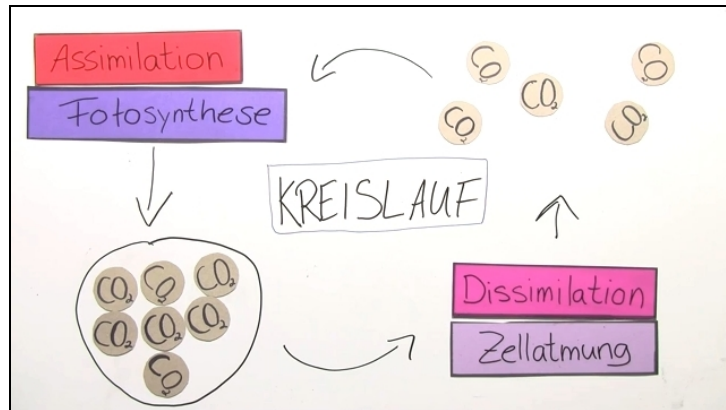 Assimilation
Fotosynthese
CO₂
CO₂
CO₂
CO₂
CO₂
KREISLAUF
CO₂
CO₂
CO₂
CO₂
CO₂
CO₂
CO₂
Dissimilation
Zellatmung